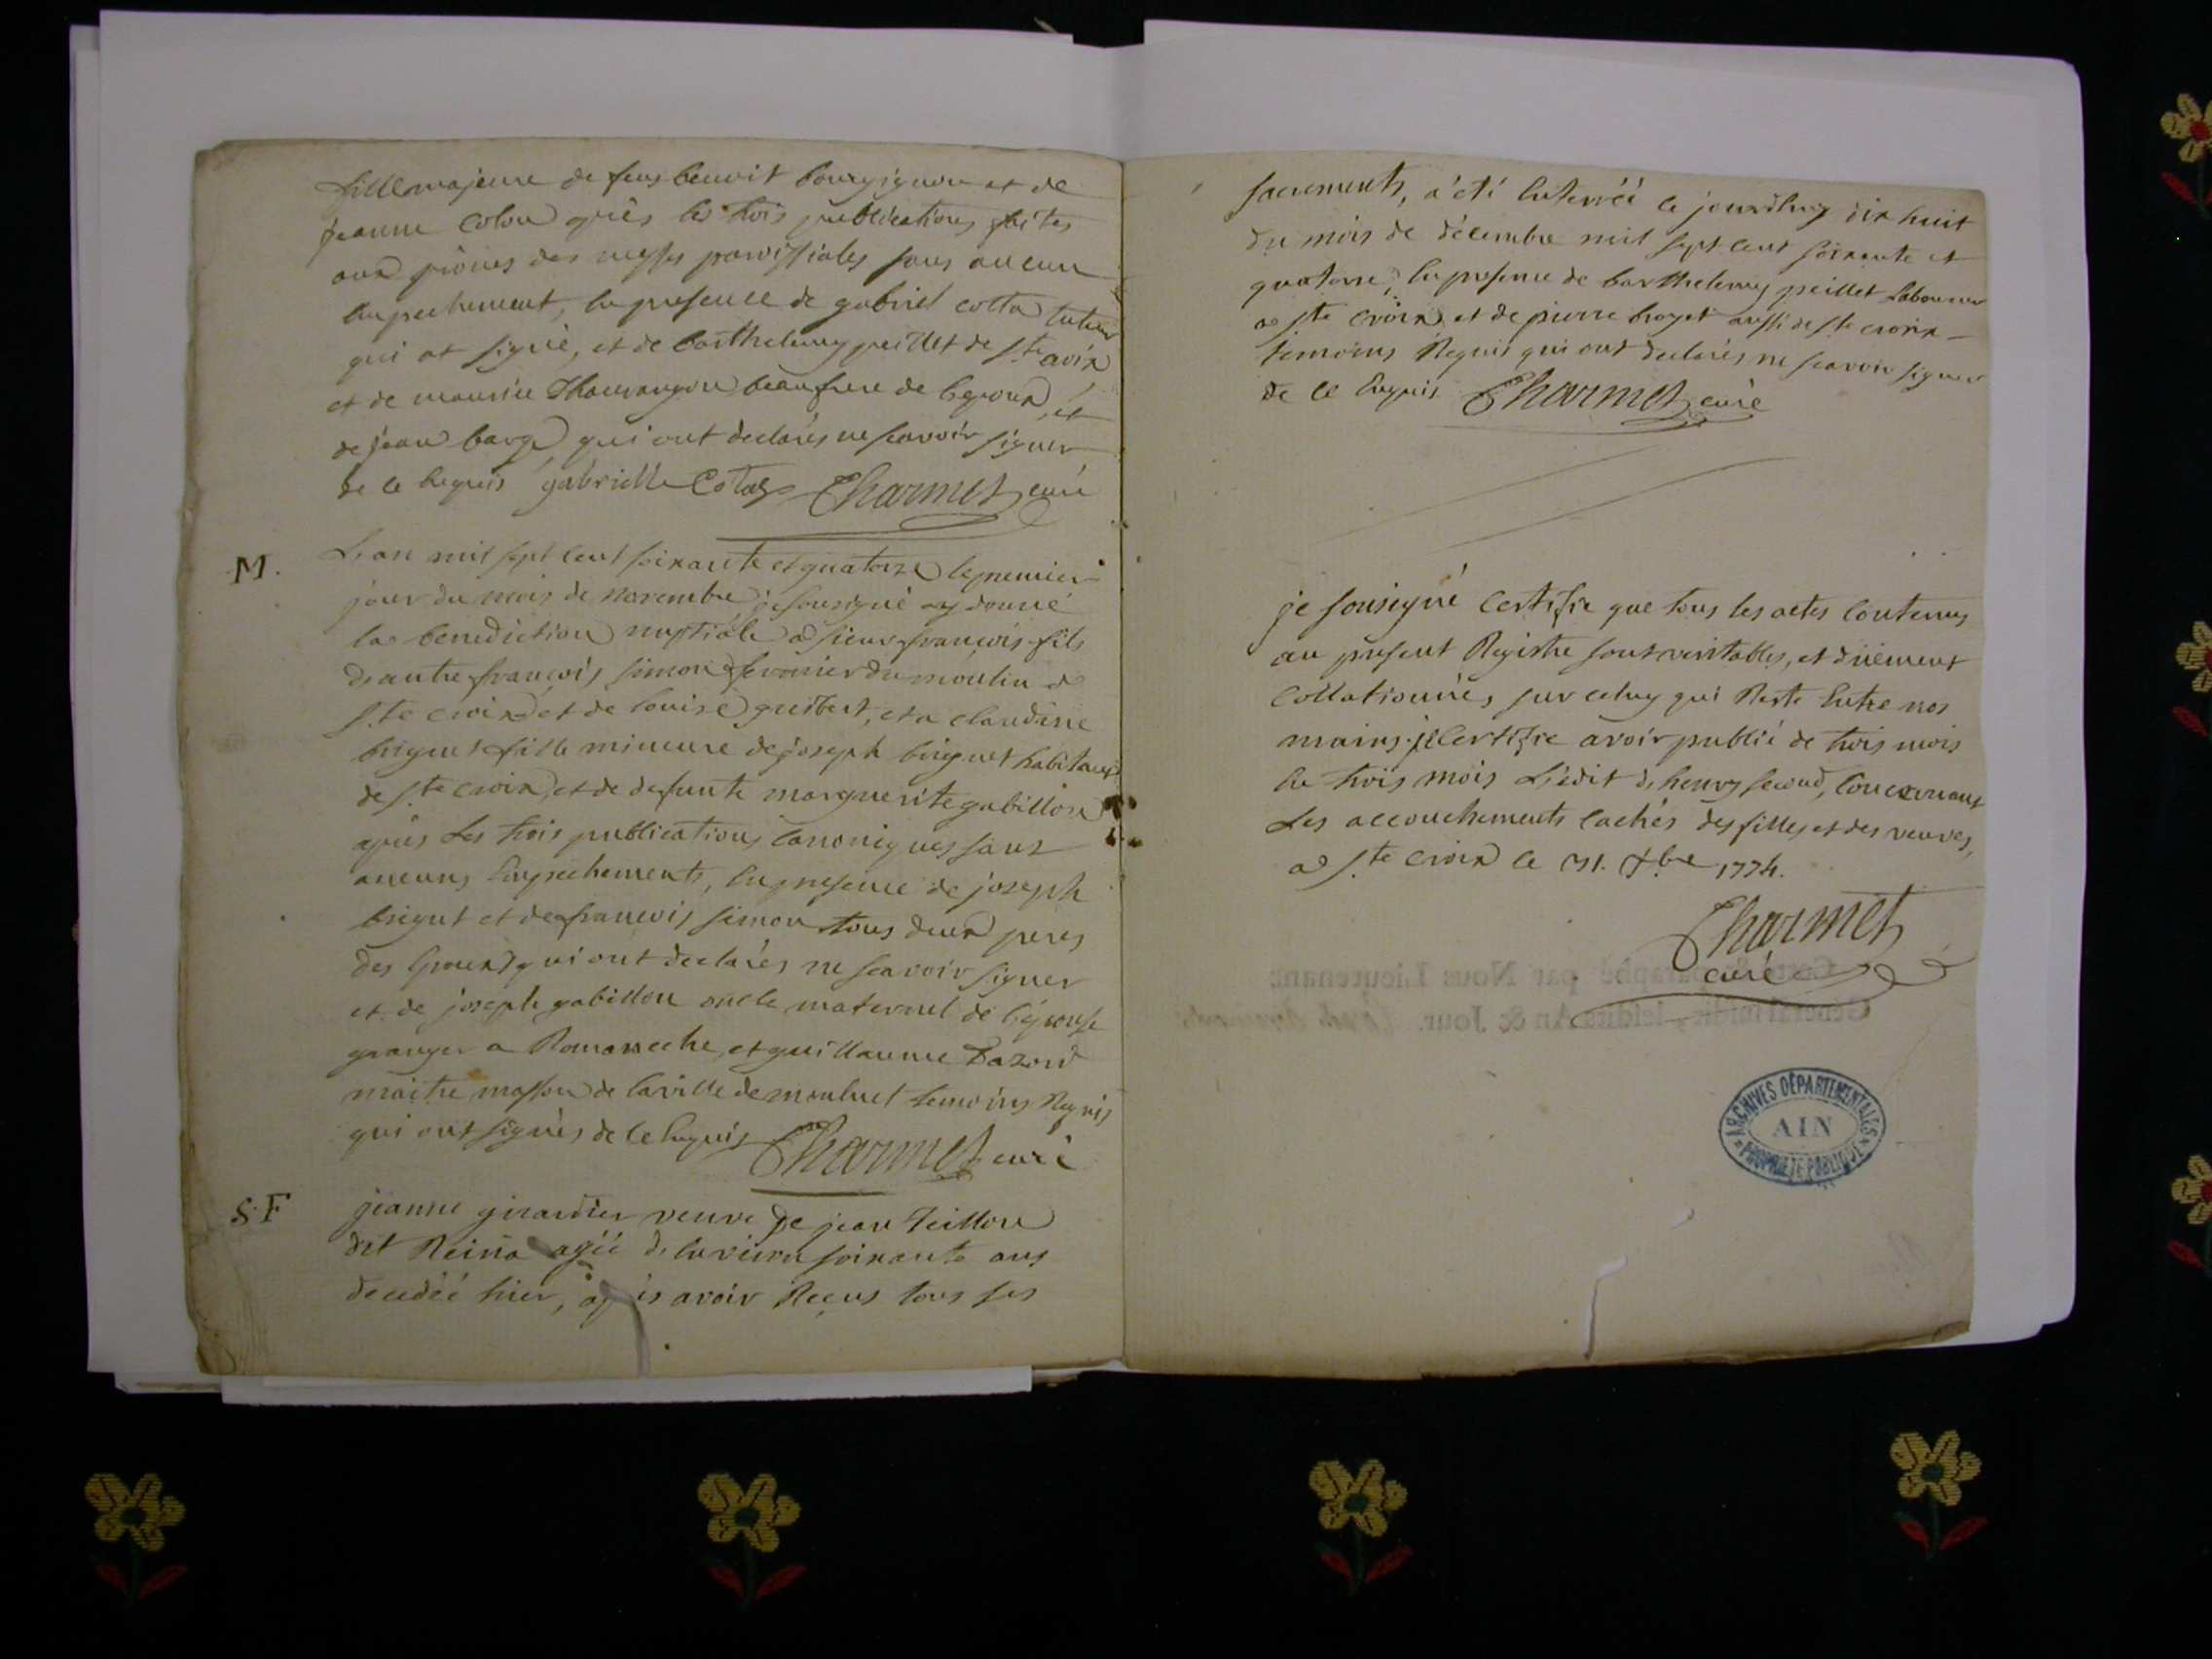 fille majeure de feus benoit bourgignon et de
jeanne colon après les trois publications faites
aux prônes des messes paroissiales sans aucun
empechement, en presence de gabriel cotta tuteur
qui at signé, et de barthelemy peillet de s.te croix
et de maurice beaufrere de l'epoux, et
de jean barge, qui ont declarés ne scavoir signer
de ce enquis gabrielle Cotas Charmet curé
M. L'an mil sept cent soixante et quatorze le premier
jour du mois de novembre je sousigné ay donné
la benediction nuptiale a sieur françois fils
d'autre françois simon fermier du moulin de
s.te croix et de louise guibert, et a claudine
briguet fille mineure de joseph briguet habitant
de s.te croix, et de defunte marguerite gabillon
après les trois publications canoniques sans
aucuns empechements, en presence de joseph
briguet et de françois simon tous deux peres
des epoux qui ont declarés ne scavoir signer
et de joseph gabillon oncle maternel de l'epouse
granger a Romaneche, et guillaume
maitre masson de la ville de monluel temoins Requis
qui ont signés de ce enquis Charmet curé
S.F jeanne girardier veuve de jean Teillon
dit Reina agée d'environ soixante ans
decedée hier, après avoir Reçus tous ses
sacrements, a été enterrée ce jourdhuy dix huit
du mois de décembre mil sept cent soixante et
quatorze, en presence de barthelemy peillet laboureur
a s.te croix et de pierre broyet aussi de ste croix
temoins Requis qui ont declarés ne scavoir signer
de ce enquis Charmet curé
je sousigné certifie que tous les actes contenus
au present Registre sont veritables, et düement
collationnés sur celuy qui Reste entre nos
mains. je certifie avoir publié de trois mois
en trois mois l'édit d'henry second, concernant
les accouchements cachés des filles et des veuves,
a s.te croix ce 31. Xbre 1774.
Charmet
curé
paraphé par Nous Lieutenant
Général susdit, lesdits An & Jour.
ARCHIVES DÉPARTEMENTALES
AIN
PROPRIÉTÉ PUBLIQUE